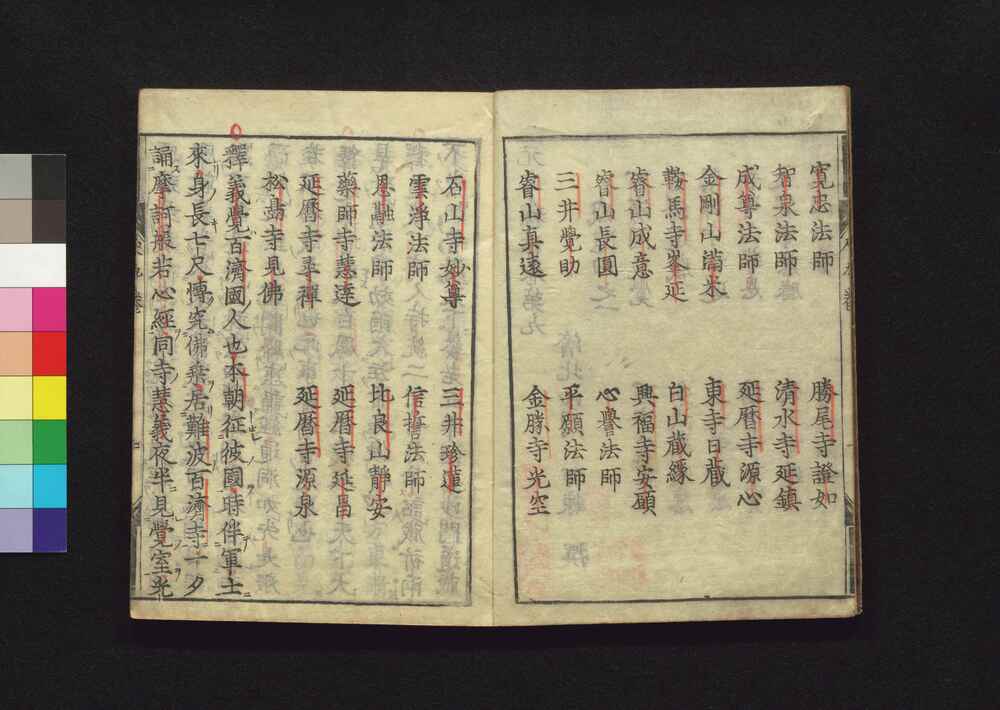 寛忠法師　勝尾寺證如
智泉法師　清水寺延鎮
成尊法師　延暦寺源心
金剛山滿米　東寺日藏
鞍馬寺峯延　白山藏縁
睿山成意　興福寺安願
睿山長圓　心譽法師
三井覺助　平願法師
睿山真遠　金勝寺光空
石山寺妙尊　三井珍蓮
雲淨法師　信誓法師
恩融法師　比良山靜安
藥師寺慧逹　延暦寺延昌
延暦寺尋禪　延暦寺源泉
松島寺見佛
釋義覺百濟國人也本朝征彼國時伴軍士
來身長七尺慱究佛乗居難波百濟寺一夕
誦摩訶般若心經同寺慧義夜半見覺室光